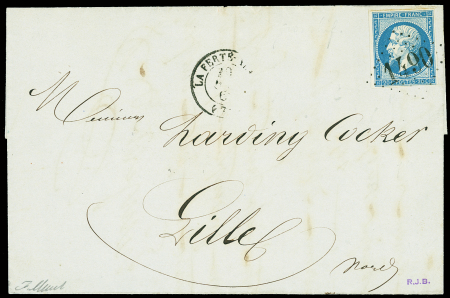 EMPIRE FRANC
1490
LA FERTÉ
Messieurs
Harding Cocker
Lille
Nord
R.J.B.